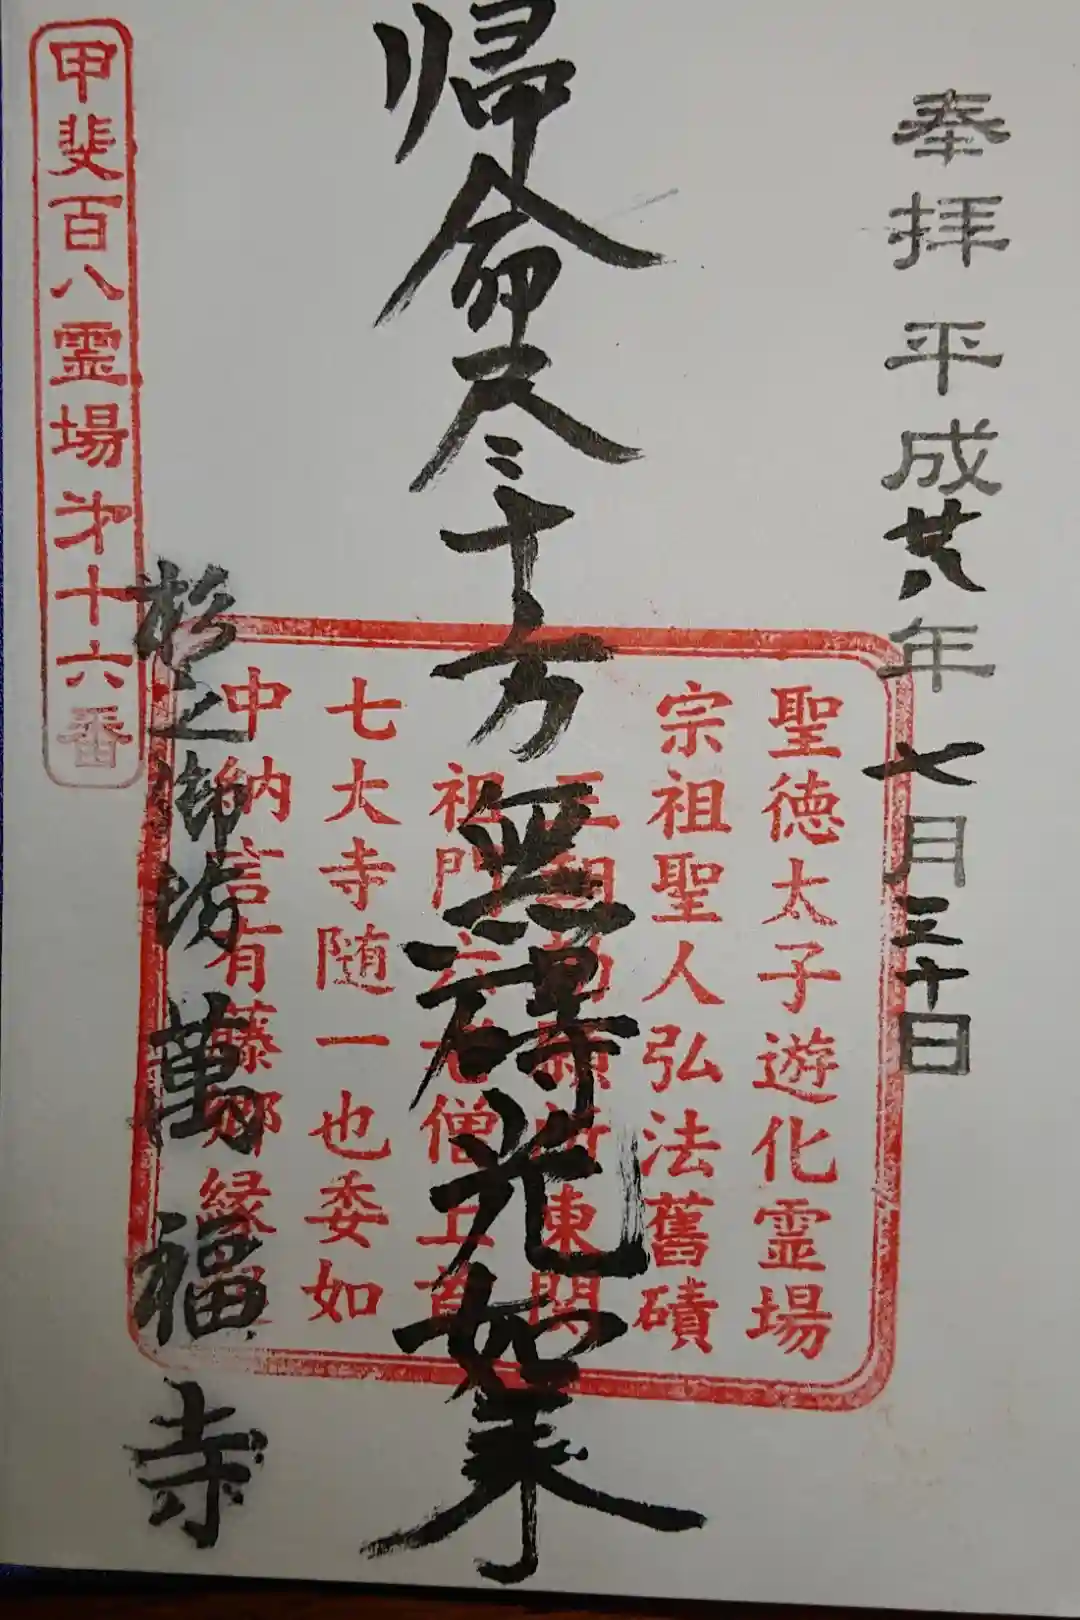 奉拝 平成廿八年 七月三十日
聖徳太子遊化霊場
宗祖聖人弘法舊磧
東関
帰命尽十方無碍光如来
祖門六老僧上首
七大寺随一也委如
中納言有藤卿縁
杉之御坊 萬福寺
甲斐百八霊場第十六番